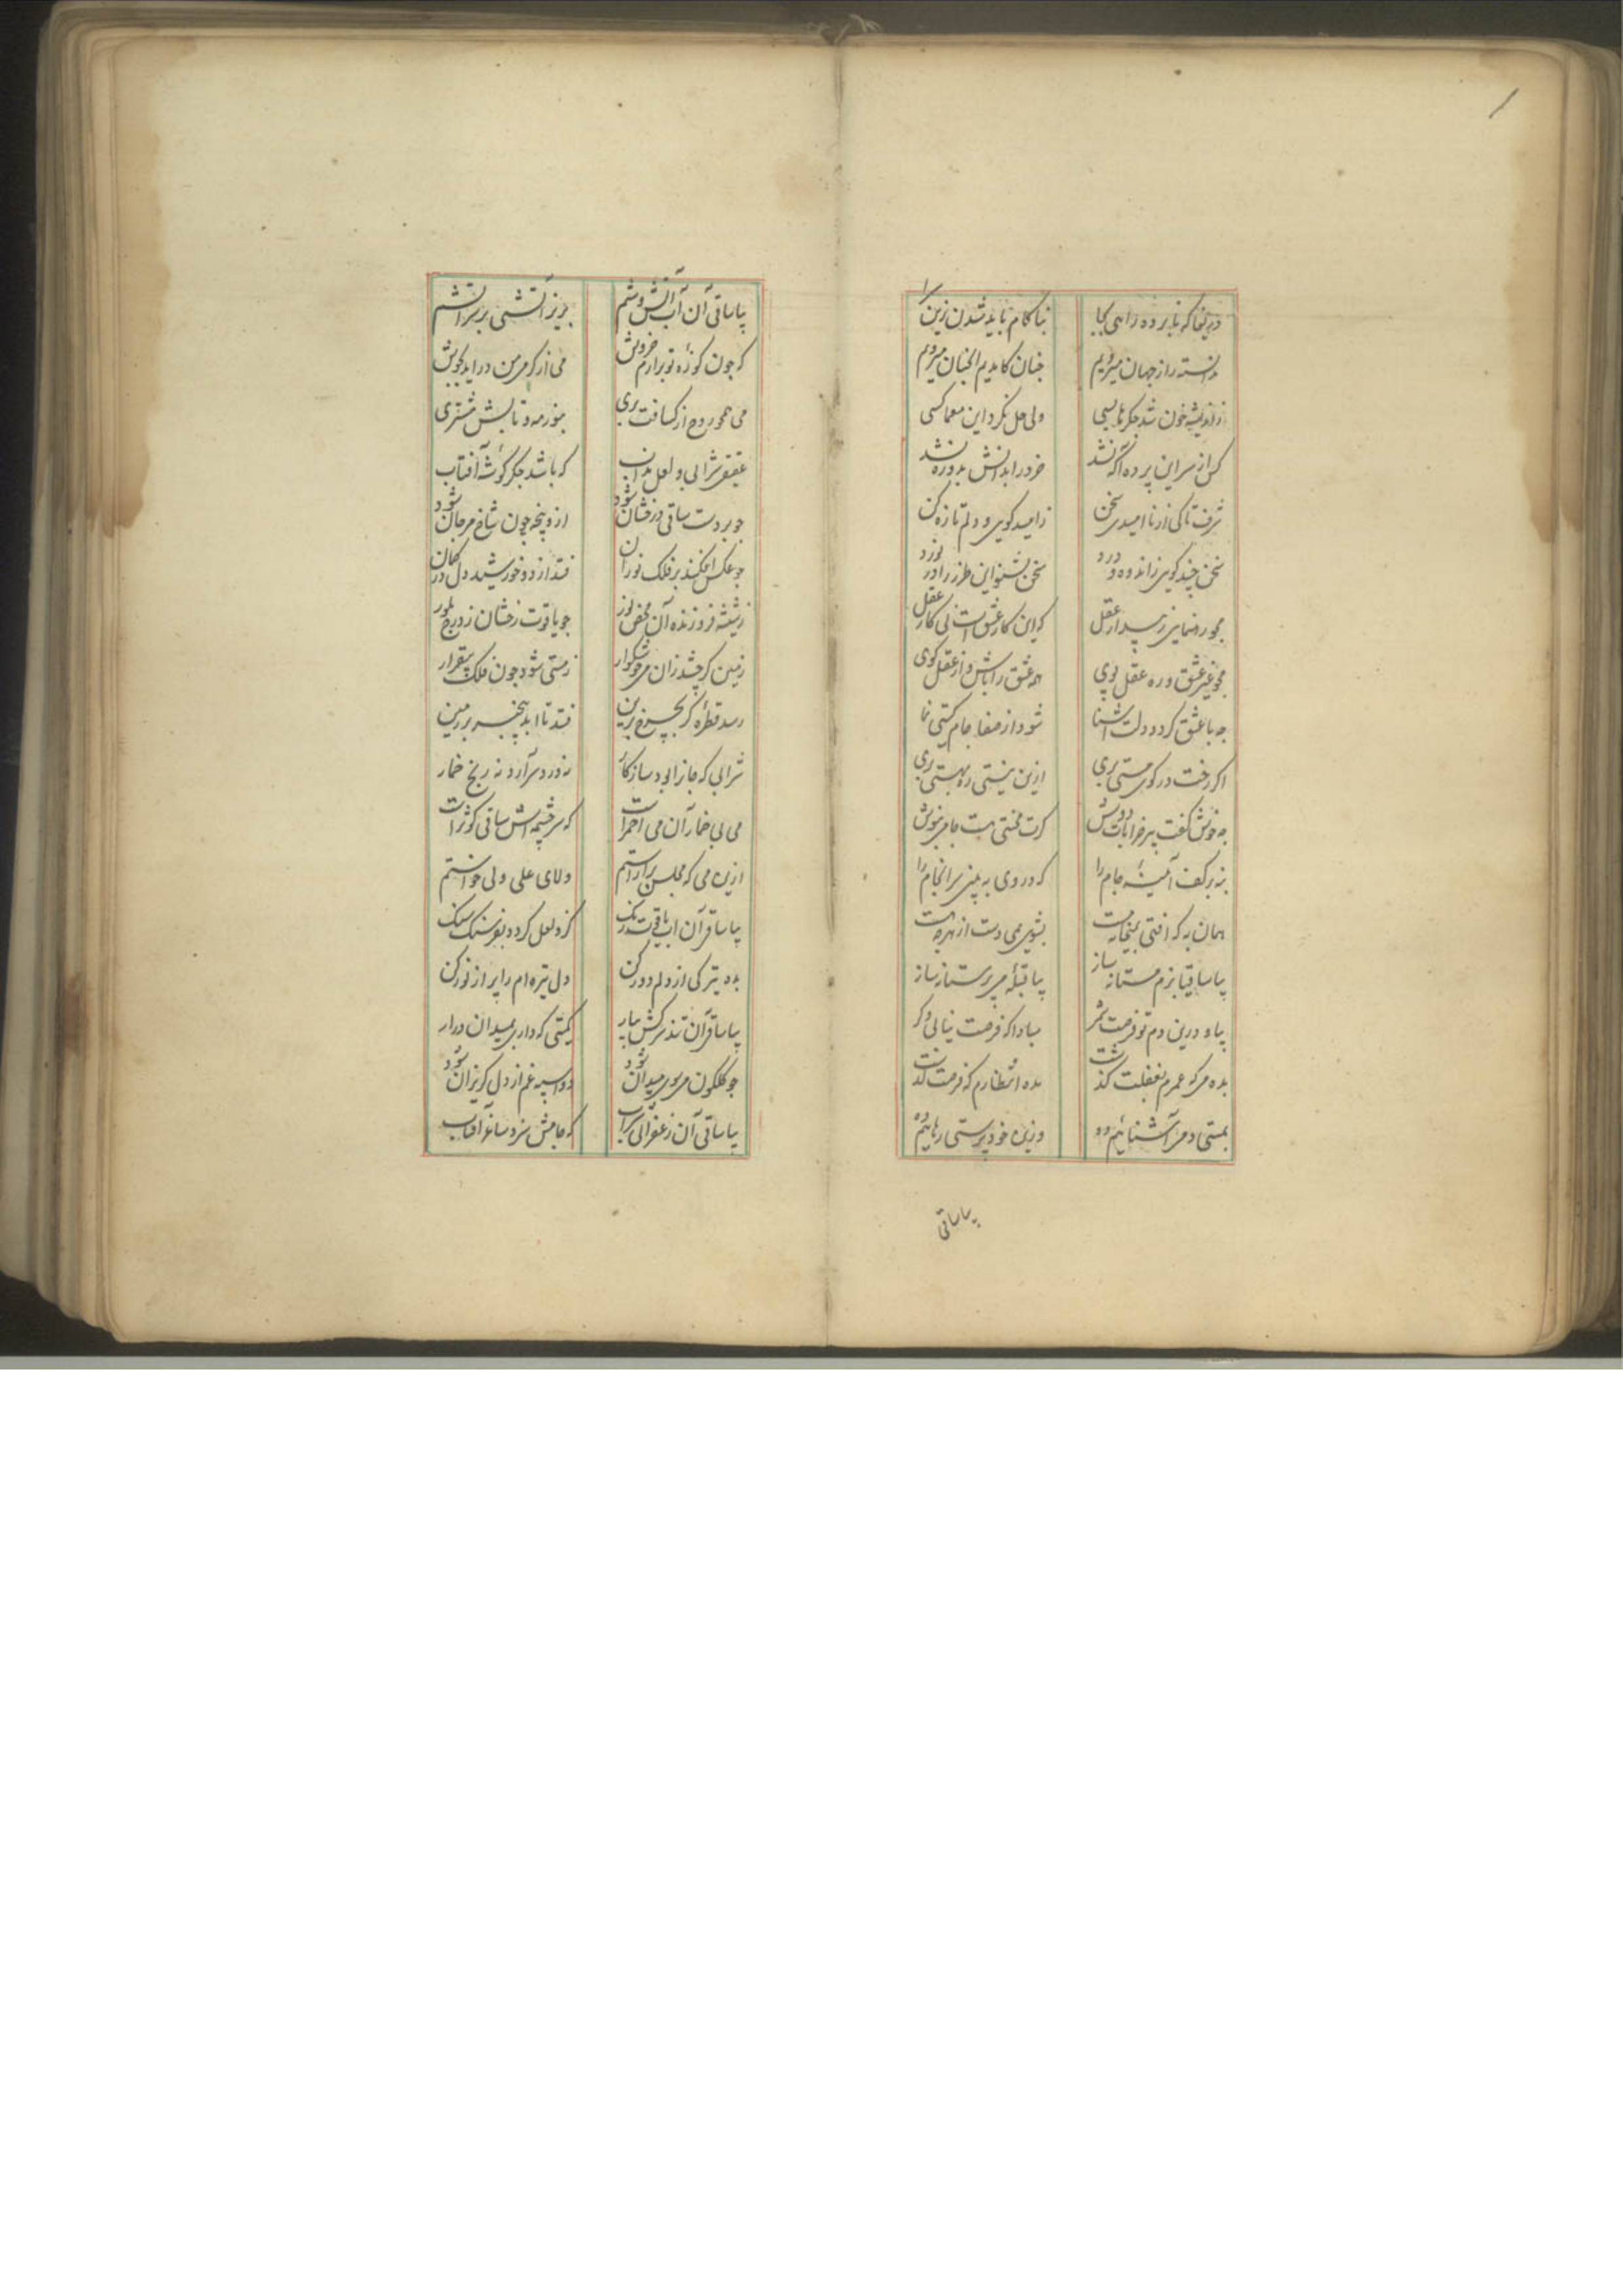 دریغا که نابرده راهی بجا بناکام باید شدن زین سرا
ندانسته راز جهان میرویم چنان کامدیم آنچنان میرویم
ز اندیشه خون شد جکرها بسی ولی حل نکرد این معما کسی
کس از سر این پرده آکه نشد خرد را بدانش بدو ره نشد
شرف تا کی از ناامیدی سخن ز امید کوی و دلم تازه کن
سخن چند کویی ز اندوه و درد سخن بشنو این طرز را در نورد
مجو رهنمایی ز پیر عقل که این کار عشق است نی کار عقل
مجو غیر عشق و ره عقل پوی همه عشق را باش و از عقل کوی
چه با عشق کردد دلت آشنا شود از صفا جام کیتی نما
اکر رخت در کوی مستی بری ازین نیستی ره بهستی بری
چه خوش کفت پیر خرابات دوش کرت محنتی هست جامی بنوش
بنه بر کف آیینهٔ جام را که در وی به بینی سرانجام را
همان به که افتی بمیخانه مست بشویی بمی دست از هرچه هست
بیا ساقیا بزم مستانه ساز بیا قبلهٔ می پرستان بساز
بیا و درین دم تو فرصت شمر مبادا که فرصت نیابی دکر
بده می که عمرم بغفلت کذشت مده انتظارم که فرصت کذشت
بمستی دمی آشناییم ده وزین خودپرستی رهاییم ده
بیا ساقی
بیا ساقی آن آب آتش وشم بریز آتشی بر سر آتشم
که چون کوزهٔ نو برارم خروش می از کرمی من دراید بجوش
می همچو روح از کسافت بری بنور مه و تابش مشتری
عقیق شرابی و لعل مذاب که باشد جکر کوشهٔ آفتاب
چو بر دست ساقی درخشان شود ازو پنجه چون شاخ مرجان شود
چو عکس افکند بر فلک نور آن فتد از دو خورشید دل در کمان
ز شیشه فروزنده آن محض نور چو یاقوت رخشان ز درج بلور
زمین کر چشد زان می خوشکوار ز مستی شود چون فلک بیقرار
رسد قطرهٔ کر بچرخ برین فتد تا ابد بیخبر بر زمین
شرابی که جان را بود سازکار نه درد سر آرد نه رنج خمار
می بی خمار آن می احمر است که سرچشمه اش ساقی کوثر است
ازین می که مجلس براراستم ولای علی ولی خواستم
بیا ساقی آن آب یاقوت رنک کزو لعل کردد بفرسنک سنک
بده تیرکی از دلم دور کن دل تیره ام را پر از نور کن
بیا ساقی آن تند سرکش بیار کمیتی که داری بمیدان درار
چو کلکون می سوی میدان شود دو اسپه غم از دل کریزان شود
بیا ساقی آن زعفرانی شراب که جامش سزد ساغر آفتاب